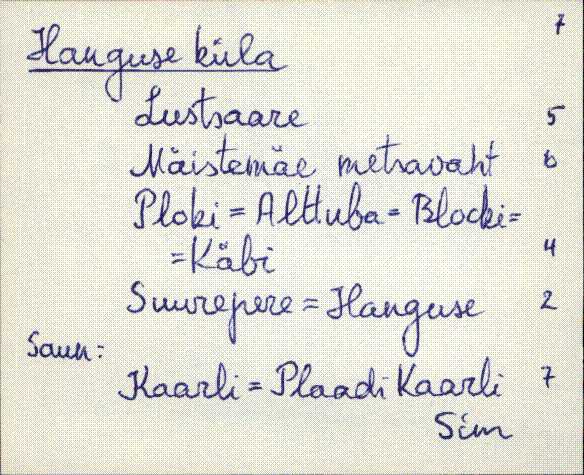 7
Hanguse küla
Lustsaare 5
Mäistemäe metsavaht 6
Ploki = Alttuba = Blocki =
= Käbi 4
Suurepere = Hanguse 2
Saun:
Kaarli = Plaadi Kaarli 7
Sim